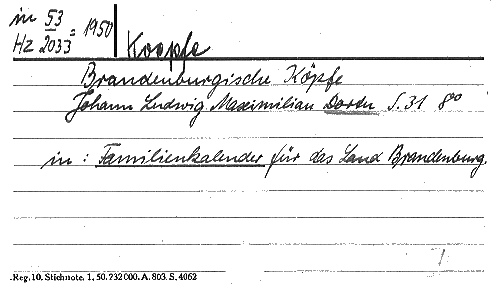 in 53
Hz 2033 = 1950
Koepfe
Brandenburgische Köpfe
Johann Ludwig Maximilian Dortu S. 31 8°
in: Familienkalender für das Land Brandenburg.
Reg. 10. Stichnote. 1, 50. 732 000. A. 803. S. 4062